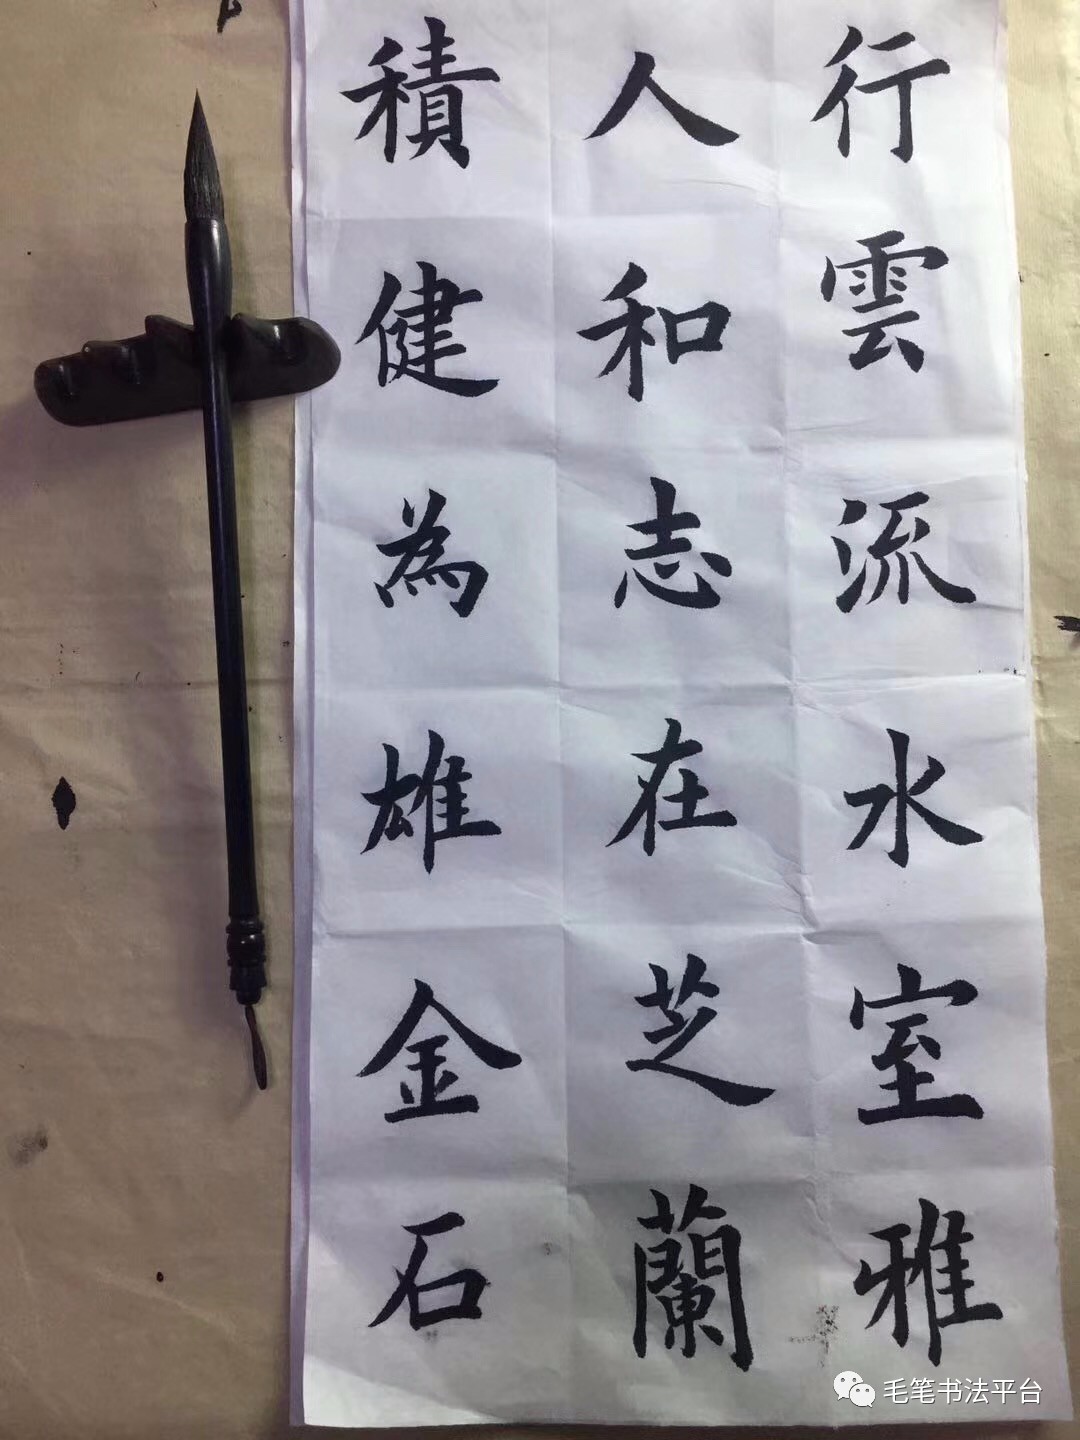 行雲流水室雅
人和志在芝蘭
積健為雄金石
毛笔书法平台